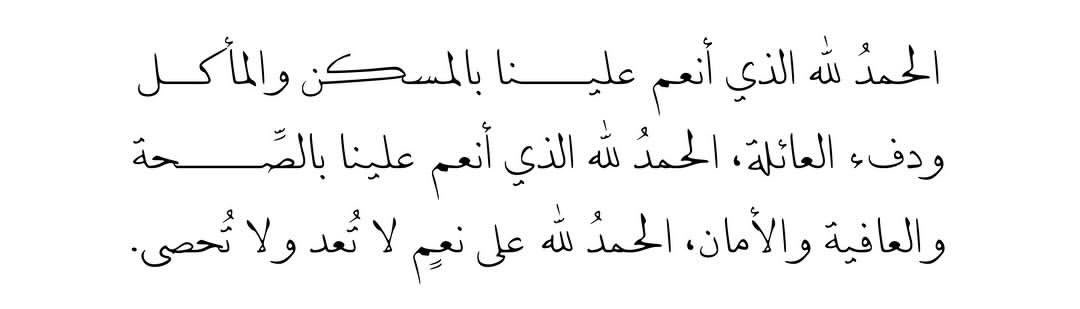 الحمدُ لله الذي أنعم علينا بالمسكن والمأكل
ودفء العائلة، الحمدُ لله الذي أنعم علينا بالصِّحة
والعافية والأمان، الحمدُ لله على نعمٍ لا تُعد ولا تُحصى.